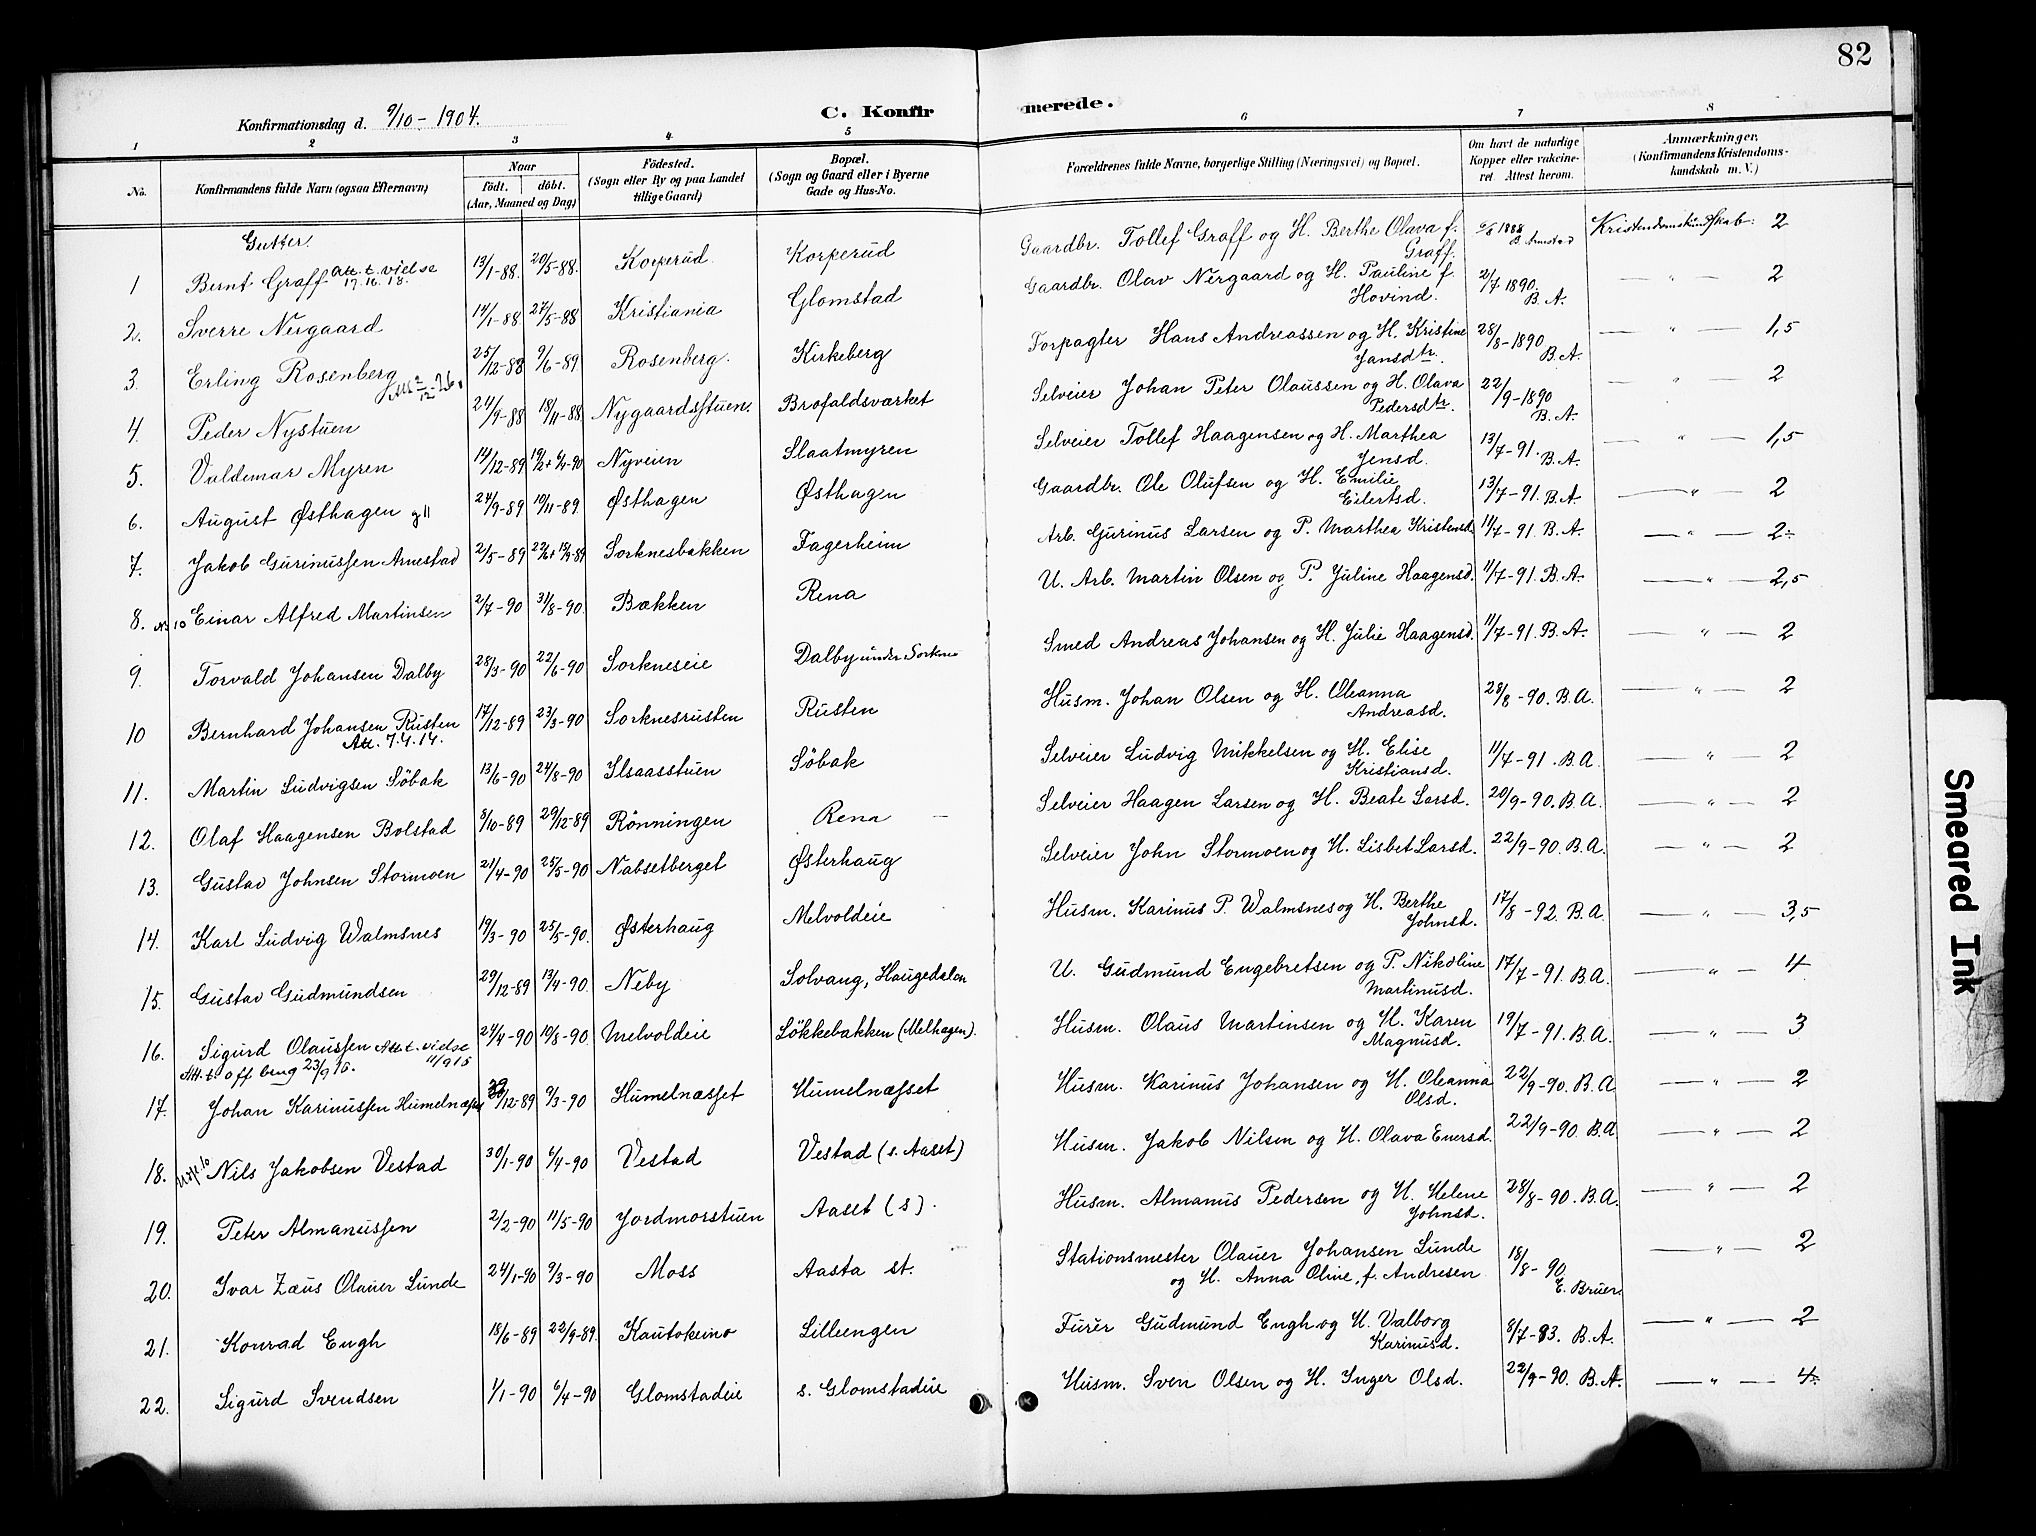 82
Konfirmationsdag d. 9/10 - 1904.
C. Konfirmerede.
1 2 3 4 5 6 7 8
No.
Konfirmandens fulde Navn (ogsaa Efternavn)
Naar
födt. döbt.
(Aar, Maaned og Dag)
Födested.
(Sogn eller By og paa Landet
tillige Gaard)
Bopæl.
(Sogn og Gaard eller i Byerne
Gade og Hus-No.
Forældrenes fulde Navne, borgerlige Stilling (Næringsvei) og Bopæl.
Om havt de naturlige
Kopper eller vakcine-
ret. Attest herom.
Anmærkninger.
(Konfirmandens Kristendoms-
kundskab m. V.)
Gutter.
1 Bernt Graff Att. t. vielse 17.16.18. 13/1-88. 20/5-88. Korperud Korperud Gaardbr. Tollef Graff og H. Berthe Olava f. Graff. 1888 Kristendomskundskab: 2
2. Sverre Nergaard 14/1-88 27/5-88 Kristiania Glomstad Gaardbr. Olav Nergaard og H. Pauline f. Hovind. 2/7 1890. B. A. — " — 2
3. Erling Rosenberg 25/12-88 9/6-89 Rosenberg. Kirkeberg Forpagter Hans Andreassen og H. Kristine Jansdtr. 28/8-1890 B. A. — " — 1,5
4. Peder Nystuen 24/9-88 18/11-88 Nygaardsstuen. Brofaldsværket Selveier Johan Peter Olaussen og H. Olava Pedersdtr. 22/9-1890 B. A. — " — 2
5. Valdemar Myren 14/12-89 Nyveien Slaatmyren Selveier Tollef Haagensen og H. Marthea Jensd. 13/7-91. B. A. — " — 1,5
6. August Østhagen 24/9-89 10/11-89. Østhagen Østhagen Gaardbr. Ole Olufsen og H. Emilie Eilertsd. 13/7-91. B. A. — " — 2
7. Jakob Gurinussen Arnestad 2/5-89 Sorknesbakken Fagerheim Arb. Gurinus Larsen og P. Marthea Kristensd. 11/7-91. B. A. — " — 2÷
8. No 10 Einar Alfred Martinsen 2/7-90 31/8-90. Bækken Rena U. Arb. Martin Olsen og P. Juline Haagensd. 11/7-91. B. A. — " — 2,5
9. Torvald Johansen Dalby 28/3-90 22/6-90 Sorkneseie Dalby under Sorknes Smed Andreas Johansen og H. Julie Haagensd. 11/7-91. B. A. — " — 2
10 Bernhard Johansen Rusten Att. 7.4.14. 17/12-89 23/3-90 Sorknesrusten Rusten Husm. Johan Olsen og H. Oleanna Andreasd. 28/8-90. B. A. — " — 2
11. Martin Ludvigsen Söbak 13/6-90 24/8-90 Ilsaasstuen Söbak Selveier Ludvig Mikkelsen og H. Elise Kristiansd. 11/7-91. B. A. — " — 2
12. Olaf Haagensen Bolstad 8/10-89 29/12-89 Rönningen Rena Selveier Haagen Larsen og H. Beate Larsd. 20/9-90. B. A. — " — 2
13. Gustav Johnsen Stormoen 21/4-90 25/5-90 Nabsetberget Østerhaug Selveier John Stormoen og H. Lisbet Larsd. 22/9-90. B. A. — " — 2
14. Karl Ludvig Walmsnes 19/3-90 25/5-90. Østerhaug Melvoldeie Husm. Karinus P. Walmsnes og H. Berthe Johnsd. 17/8-92. B. A. — " — 3,5
15. Gustav Gudmundsen 29/12-89 13/4-90. Neby Solvang, Haugedalen U. Gudmund Engebretsen og P. Nikoline Martinusd. 17/7-91. B. A. — " — 4
16. Sigurd Olaussen Att. t. vielse 11/9 15 24/4-90 10/8-90. Melvoldeie Lökkebakken (Melhagen). Husm. Olaus Martinsen og H. Karen Magnusd. 19/7-91. B. A. — " — 3
Att. t. off brug 23/9 16.
17. Johan Karinussen Humelnæsset 9/3-90 Humelnæsset Humelnæsset Husm. Karinus Johansen og H. Oleanna Olsd. 22/9-90. B. A — " — 2
18. Nils Jakobsen Vestad 30/1-90 6/4-90 Vestad Vestad (s. Aaset) Husm. Jakob Nilsen og H. Olava Enersd. 22/9-90. B. A — " — 2
19. Peter Almanussen 2/2-90 11/5-90 Jordmorstuen Aaset (s). Husm. Almanus Pedersen og H. Helene Johnsd. 28/8-90. B. A. — " — 2
20. Ivar Zæus Olauer Lunde 24/1-90 9/3-90 Moss Aasta st. Stationsmester Olauer Johansen Lunde og H. Anna Oline, f. Andresen 18/8-90 E. Bruer. — " — 2
21. Konrad Engh 18/6-89 22/9-89. Kautokeino Lilleengen Furér Gudmund Engh og H. Valborg Karinusd. 8/7-93. B. A. — " — 2
22. Sigurd Svendsen 1/1-90 6/4-90 Glomstadeie s. Glomstadeie Husm. Sven Olsen og H. Inger Olsd. 22/9-90. B. A. — " — 4÷
Smeared Ink